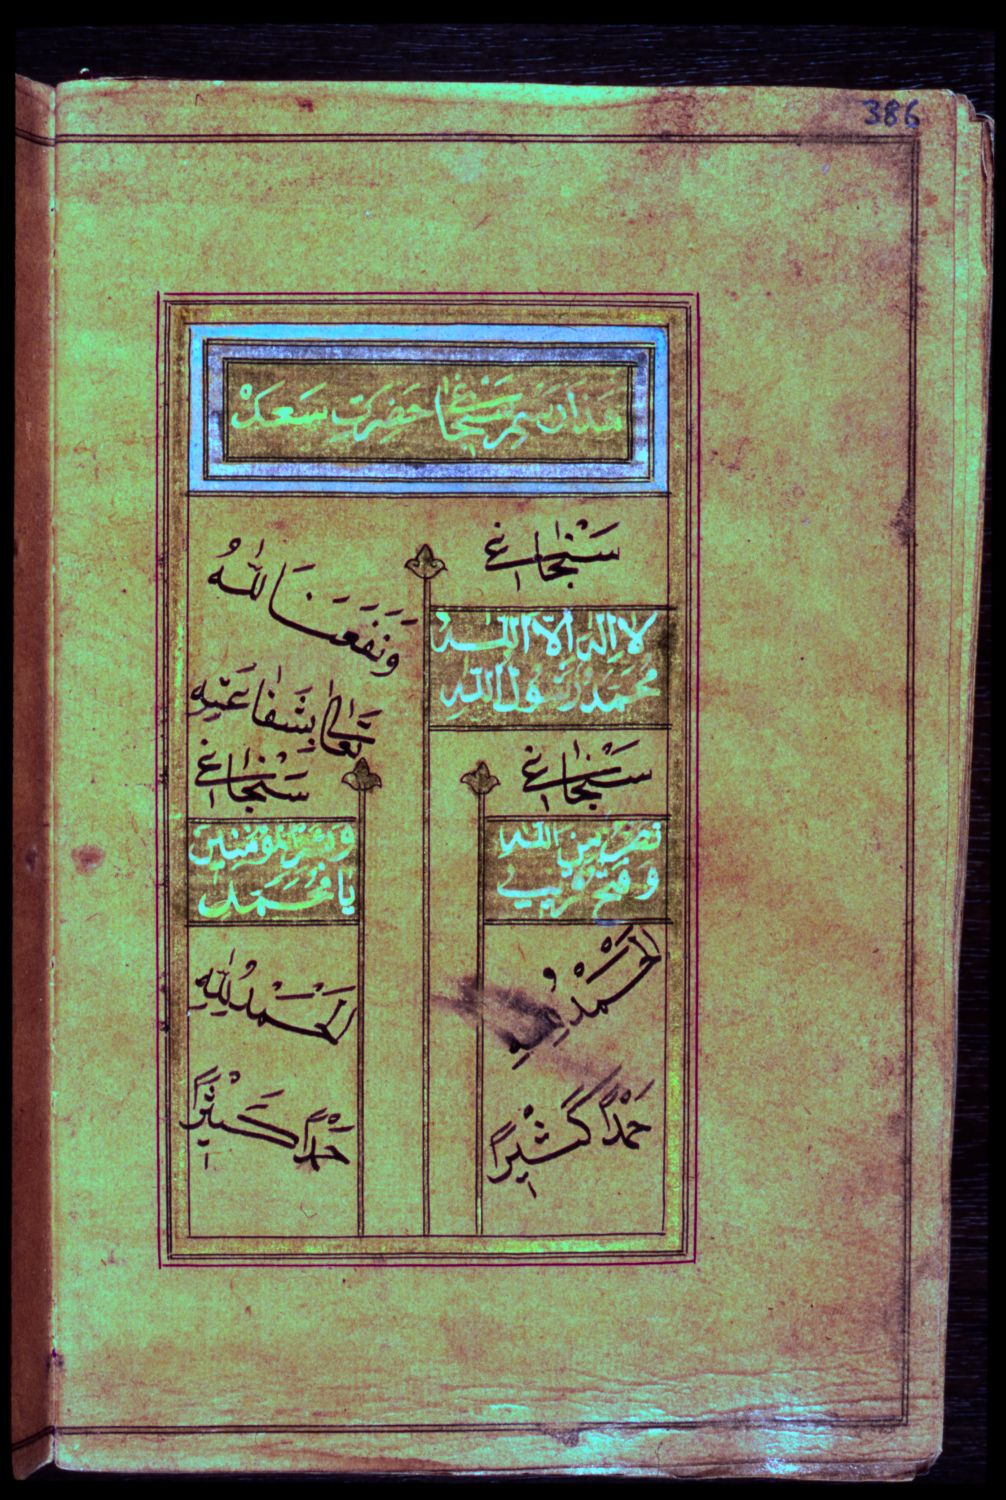 386
هذا رسم سنجاغ حضرت سعد
سَنْجاغ
لا اله الا الله
محمد رسول الله
سَنْجاغ
نصر من الله
وفتح قريب
الْحَمْدُ لِلهِ
حَمْدًا كَثِيرًا
وَنَفَعَنَا اللهُ
تَعَالى بِشَفَاعَتِهِ
سَنْجاغ
وبشر المؤمنين
يا محمد
الْحَمْدُ لِلهِ
حَمْدًا كَثِيْرًا